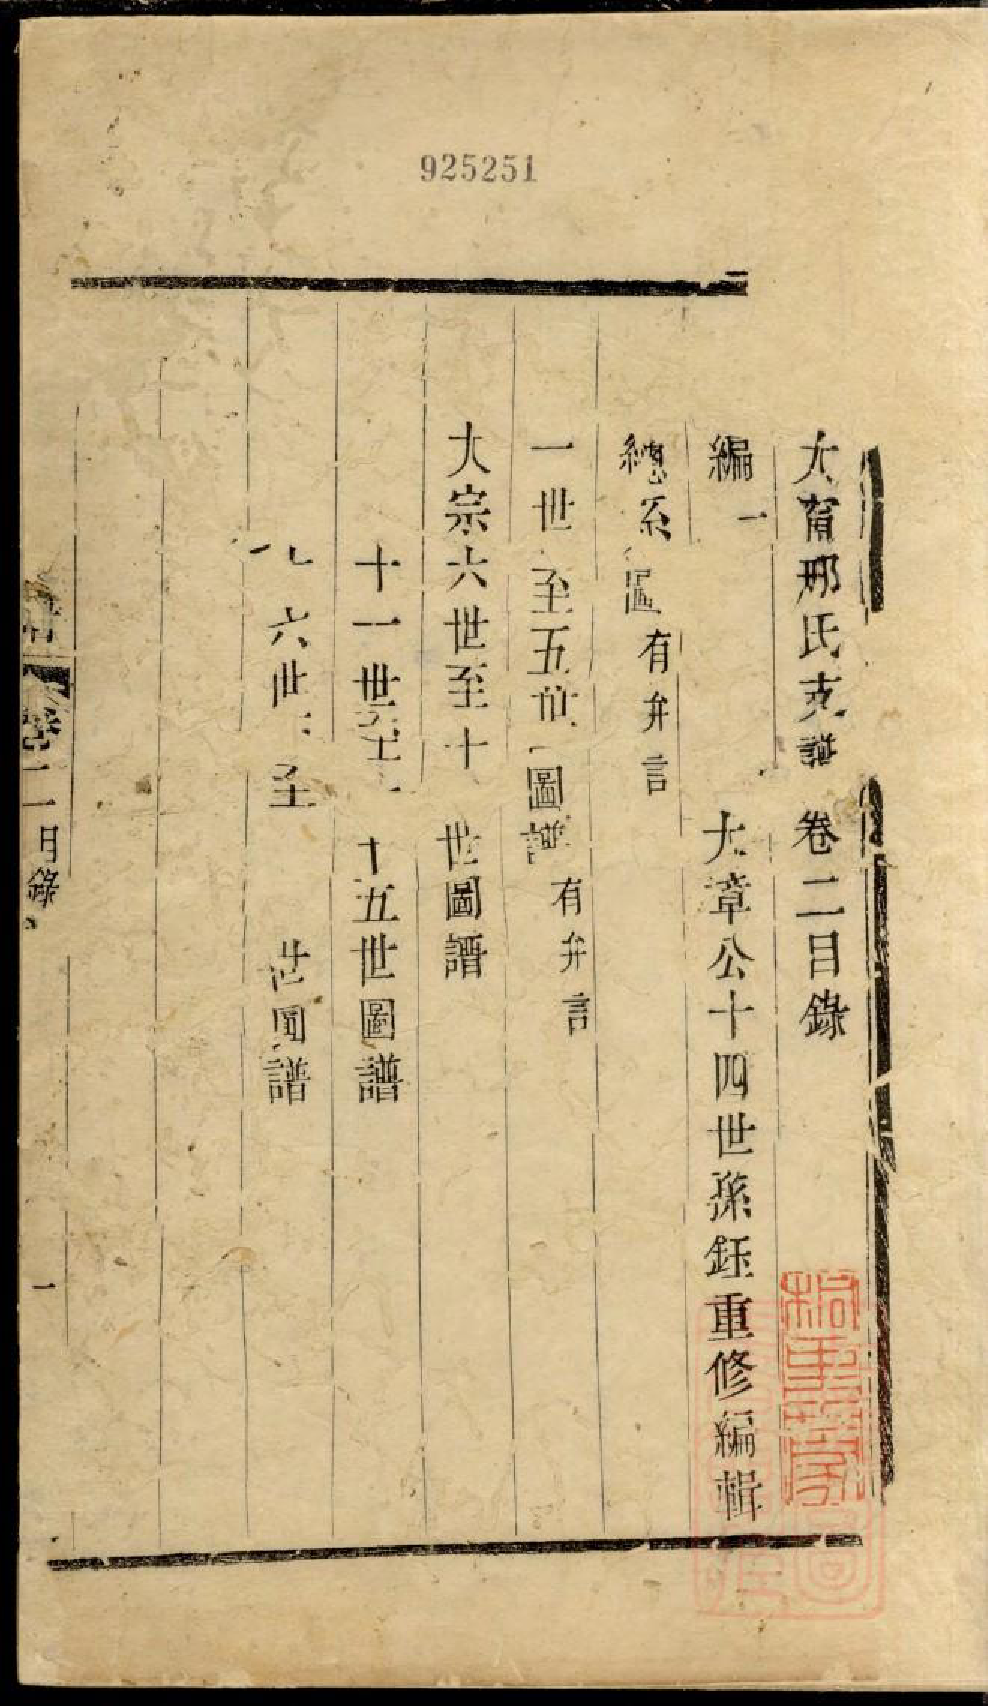 925251
大育邢氏支譜　卷二目錄
編一　大章公十四世孫鈺重修編輯
總系圖有弁言
一世至五世圖譜有弁言
大宗六世至十世圖譜
十一世至十五世圖譜
六世至 世圖譜
卷二 目錄 一